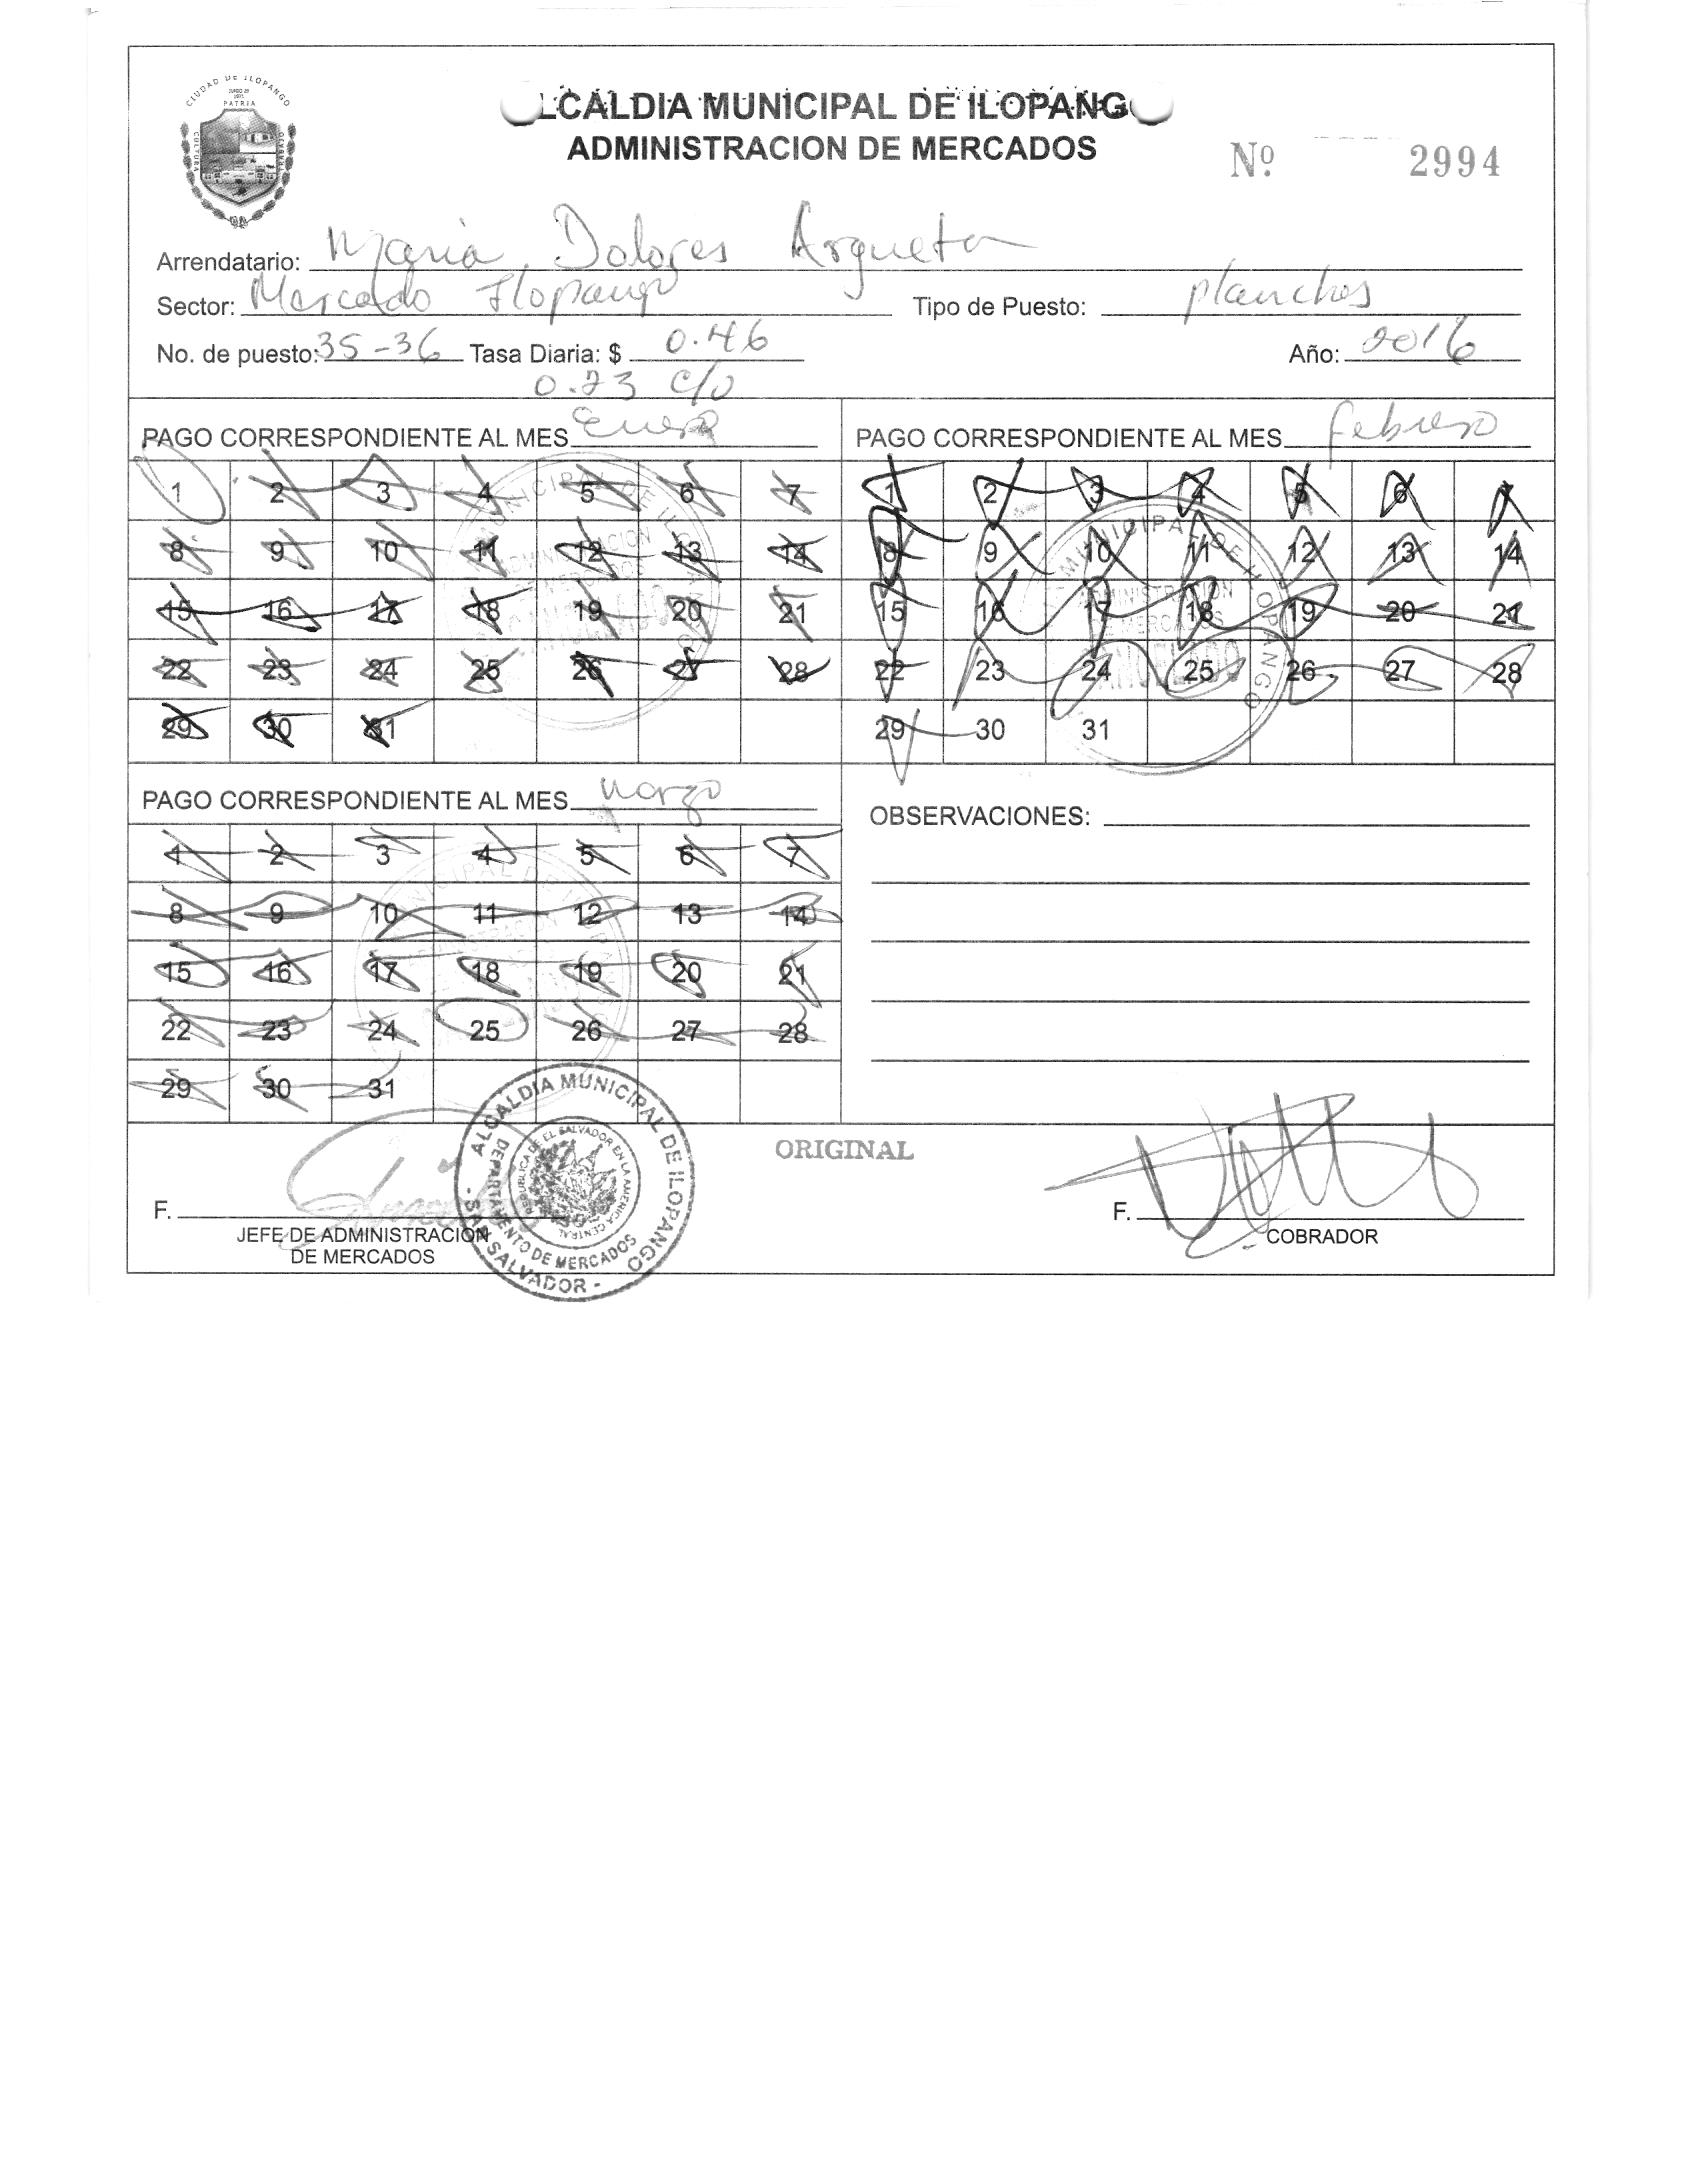 CIUDAD DE ILOPANGO
PATRIA
CULTURA
LCALDIA MUNICIPAL DE ILOPANG
ADMINISTRACION DE MERCADOS
Nº 2994
Arrendatario: Maria Dolores Argueta
Sector: Mercado Ilopango Tipo de Puesto: planchas
No. de puesto: 35-36 Tasa Diaria: $ 0.46 Año: 2016
0.23 c/u
PAGO CORRESPONDIENTE AL MES Enero
1 2 3 4 5 6 7
8 9 10 11 12 13 14
15 16 17 18 19 20 21
22 23 24 25 26 27 28
29 30 31
PAGO CORRESPONDIENTE AL MES febrero
1 2 3 4 5 6 7
8 9 10 11 12 13 14
15 16 17 18 19 20 21
22 23 24 25 26 27 28
29 30 31
MUNICIPAL DE ILOPANGO
ADMINISTRACION
MERCADOS
CANCELADO
PAGO CORRESPONDIENTE AL MES Marzo
1 2 3 4 5 6 7
8 9 10 11 12 13 14
15 16 17 18 19 20 21
22 23 24 25 26 27 28
29 30 31
OBSERVACIONES:
ORIGINAL
F.
JEFE DE ADMINISTRACIÓN
DE MERCADOS
ALCALDIA MUNICIPAL DE ILOPANGO
- SAN SALVADOR -
DEPARTAMENTO DE MERCADOS
REPUBLICA DE EL SALVADOR EN LA AMERICA CENTRAL
F.
COBRADOR